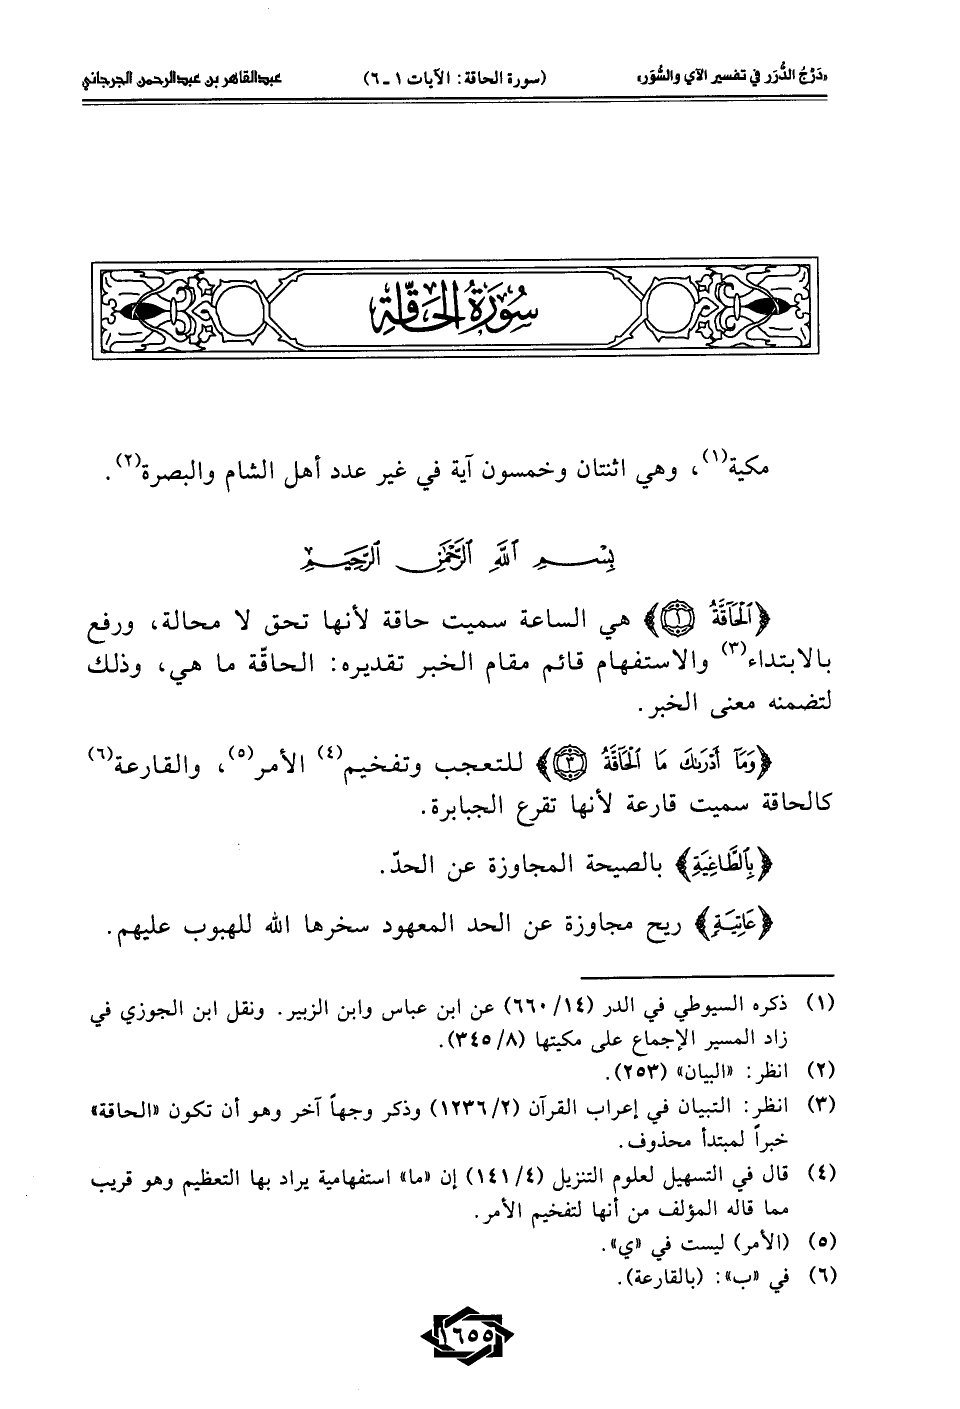 «دَرْجُ الدُّرَر في تفسير الآي والسُّوَر» (سورة الحاقة: الآيات ١ ـ ٦) عبدالقاهر بن عبدالرحمن الجرجاني
سُورَةُ الحَاقَّةِ
مكية(١)، وهي اثنتان وخمسون آية في غير عدد أهل الشام والبصرة(٢).
بِسْمِ ٱللَّهِ ٱلرَّحْمَٰنِ ٱلرَّحِيمِ
﴿ٱلْحَاقَّةُ ۝١﴾ هي الساعة سميت حاقة لأنها تحق لا محالة، ورفع
بالابتداء(٣) والاستفهام قائم مقام الخبر تقديره: الحاقّة ما هي، وذلك
لتضمنه معنى الخبر.
﴿وَمَآ أَدْرَىٰكَ مَا ٱلْحَاقَّةُ ۝٣﴾ للتعجب وتفخيم(٤) الأمر(٥)، والقارعة(٦)
كالحاقة سميت قارعة لأنها تقرع الجبابرة.
﴿بِٱلطَّاغِيَةِ﴾ بالصيحة المجاوزة عن الحدّ.
﴿عَاتِيَةٍ﴾ ريح مجاوزة عن الحد المعهود سخرها الله للهبوب عليهم.
(١) ذكره السيوطي في الدر (١٤/ ٦٦٠) عن ابن عباس وابن الزبير. ونقل ابن الجوزي في
زاد المسير الإجماع على مكيتها (٨/ ٣٤٥).
(٢) انظر: «البيان» (٢٥٣).
(٣) انظر: التبيان في إعراب القرآن (٢/ ١٢٣٦) وذكر وجهاً آخر وهو أن تكون «الحاقة»
خبراً لمبتدأ محذوف.
(٤) قال في التسهيل لعلوم التنزيل (٤/ ١٤١) إن «ما» استفهامية يراد بها التعظيم وهو قريب
مما قاله المؤلف من أنها لتفخيم الأمر.
(٥) (الأمر) ليست في «ي».
(٦) في «ب»: (بالقارعة).
١٦٥٥